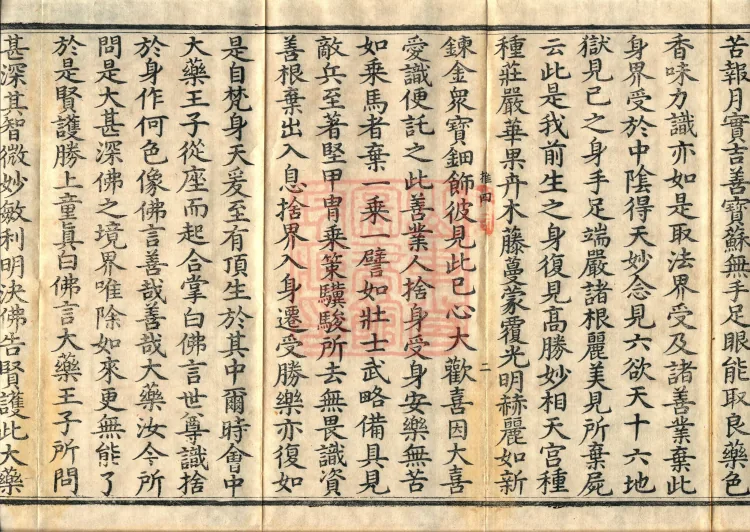 苦報月實吉善寶蘇無手足眼能取良藥色
香味力識亦如是取法界受及諸善業棄此
身界受於中陰得天妙念見六欲天十六地
獄見已之身手足端嚴諸根麗美見所棄屍
云此是我前生之身復見高勝妙相天宮種
種莊嚴華果卉木藤蔓蒙覆光明赫麗如新
推四
二
鍊金眾寶鈿飾彼見此已心大歡喜因大喜
愛識便託之此善業人捨身受身安樂無苦
如乘馬者棄一乘一譬如壯士武略備具見
敵兵至著堅甲冑乘策驥駿所去無畏識資
善根棄出入息捨界入身遷受勝樂亦復如
是自梵身天爰至有頂生於其中爾時會中
大藥王子從座而起合掌白佛言世尊識捨
於身作何色像佛言善哉善哉大藥汝今所
問是大甚深佛之境界唯除如來更無能了
於是賢護勝上童真白佛言大藥王子所問
甚深其智微妙敏利明決佛告賢護此大藥